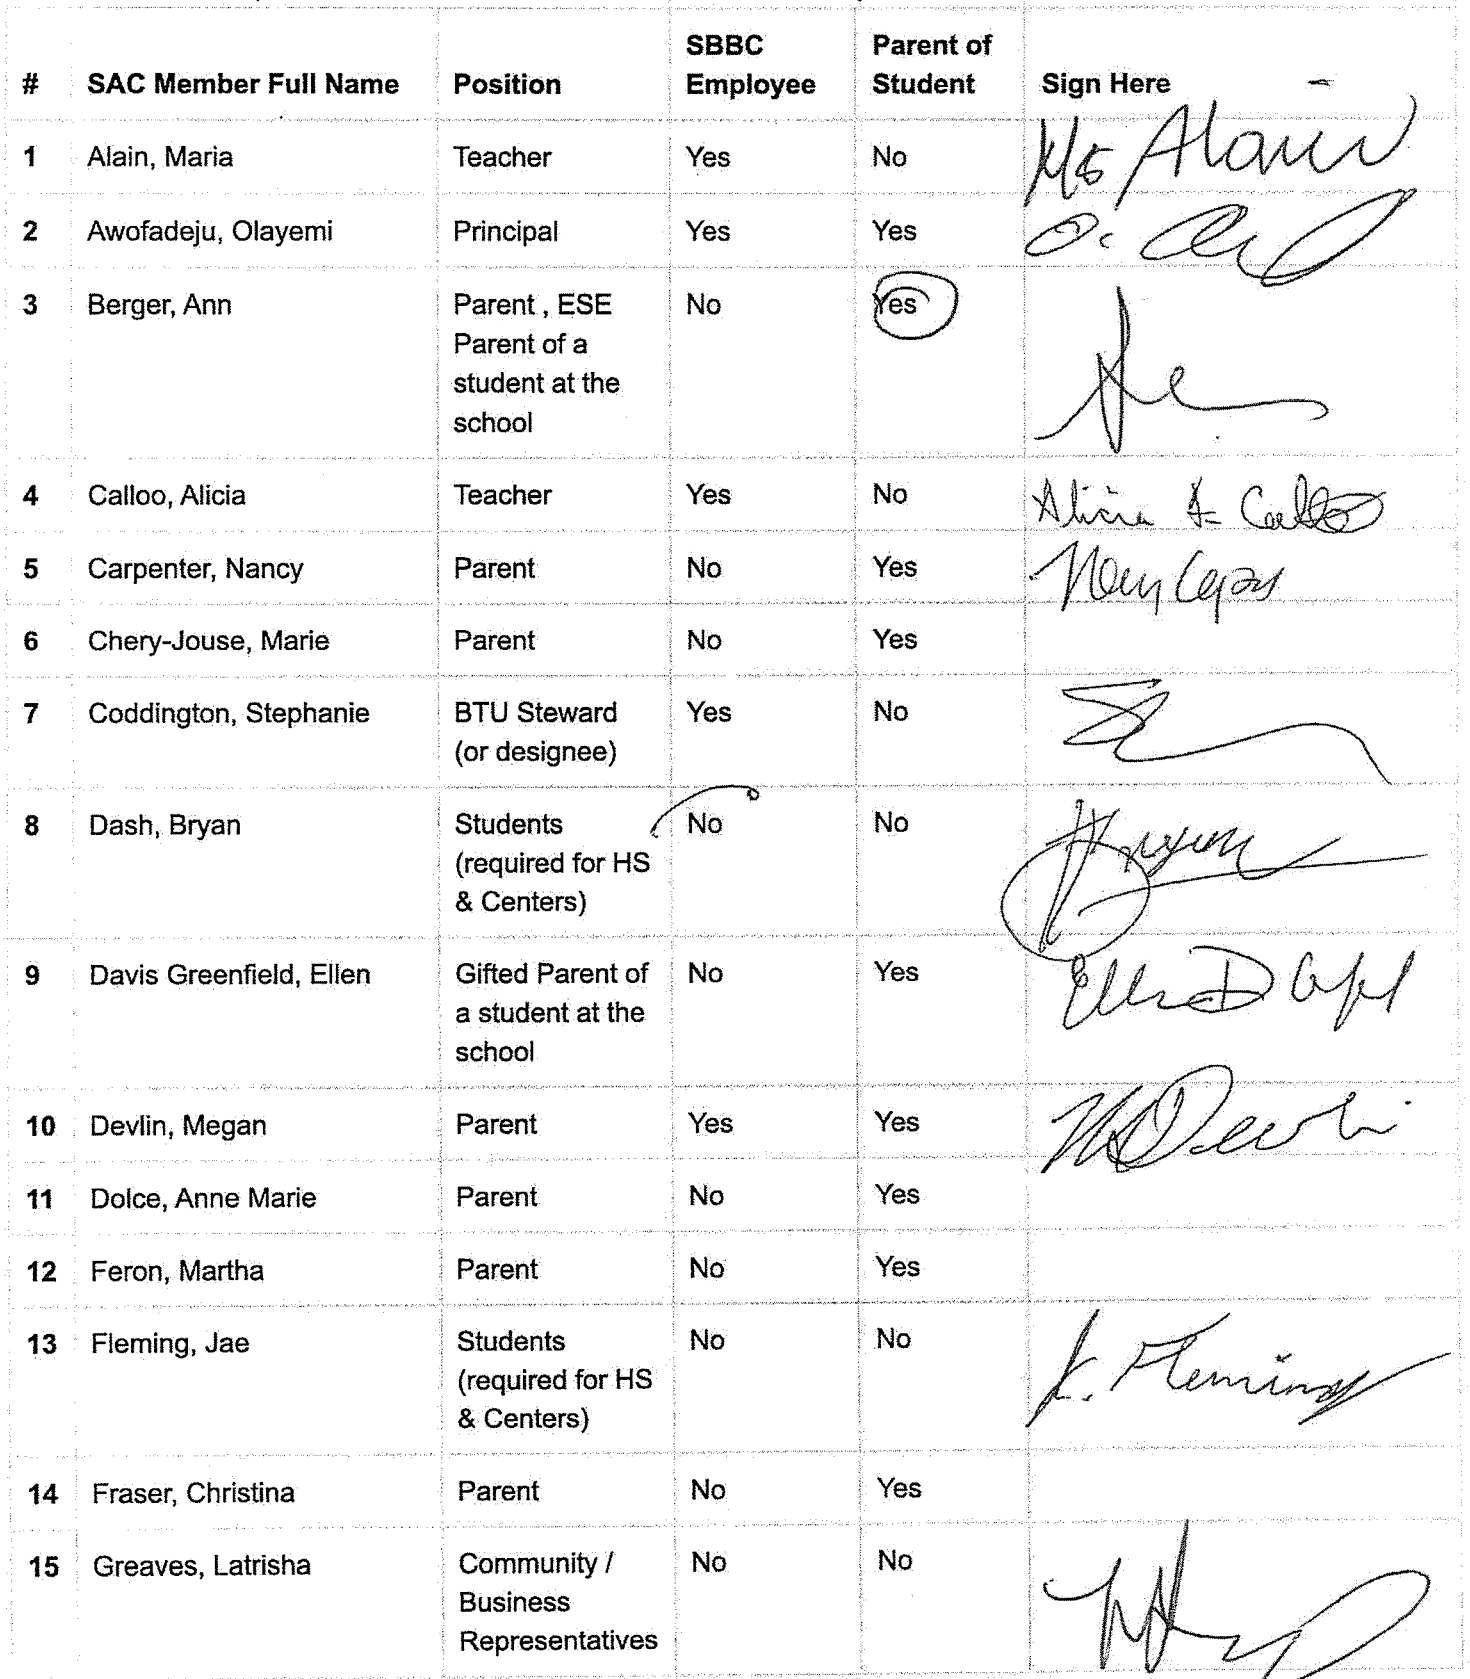 # SAC Member Full Name Position SBBC Employee Parent of Student Sign Here
1 Alain, Maria Teacher Yes No Ms Alain
2 Awofadeju, Olayemi Principal Yes Yes O.
3 Berger, Ann Parent , ESE No Yes
Parent of a
student at the
school
4 Calloo, Alicia Teacher Yes No Alicia A- Calloo
5 Carpenter, Nancy Parent No Yes
6 Chery-Jouse, Marie Parent No Yes
7 Coddington, Stephanie BTU Steward Yes No
(or designee)
8 Dash, Bryan Students No No
(required for HS
& Centers)
9 Davis Greenfield, Ellen Gifted Parent of No Yes Ellen D
a student at the
school
10 Devlin, Megan Parent Yes Yes M Devlin
11 Dolce, Anne Marie Parent No Yes
12 Feron, Martha Parent No Yes
13 Fleming, Jae Students No No J. Fleming
(required for HS
& Centers)
14 Fraser, Christina Parent No Yes
15 Greaves, Latrisha Community / No No
Business
Representatives